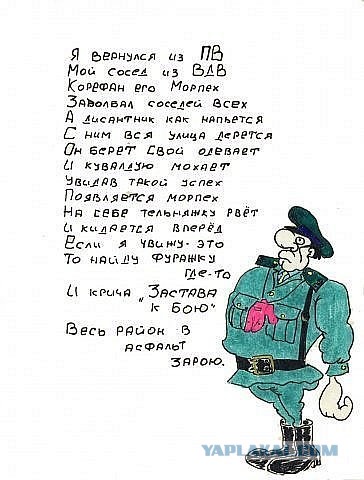 Я вернулся из ПВ
Мой сосед из ВДВ
Корефан его Морпех
Заволбал соседей всех
А дисантник как напьется
С ним вся улица дерется
Он берет свой одевает
И кувалдую мохает
Увидав такой успех
Появляется морпех
На себе тельняжку рвёт
И кидается вперёд
Если я увижу это
То найду фуражку
где-то
И крича „Застава
к бою"
Весь район в
асфальт
зарою.
YAPLAKAL.COM